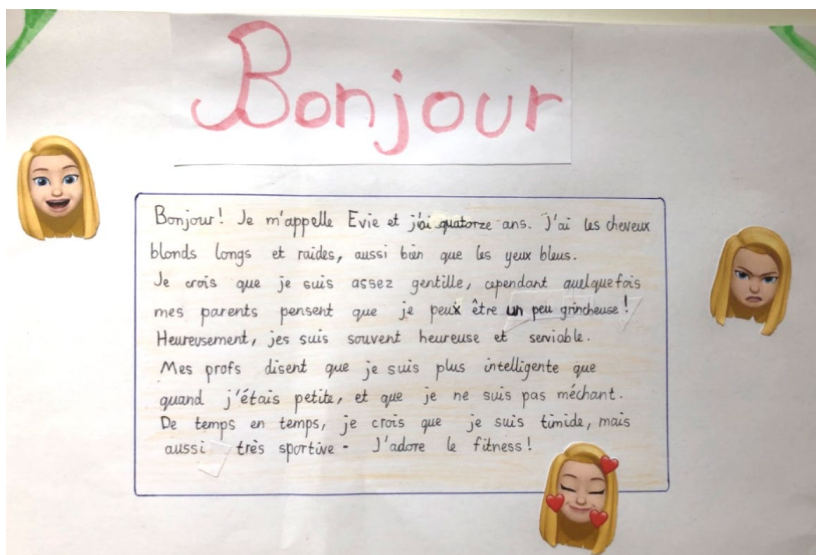 Bonjour
Bonjour! Je m'appelle Evie et j'ai quatorze ans. J'ai les cheveux
blonds longs et raides, aussi bien que les yeux bleus.
Je crois que je suis assez gentille, cependant quelquefois
mes parents pensent que je peux être un peu grincheuse!
Heureusement, jes suis souvent heureuse et serviable.
Mes profs disent que je suis plus intelligente que
quand j'étais petite, et que je ne suis pas méchant.
De temps en temps, je crois que je suis timide, mais
aussi très sportive - J'adore le fitness!